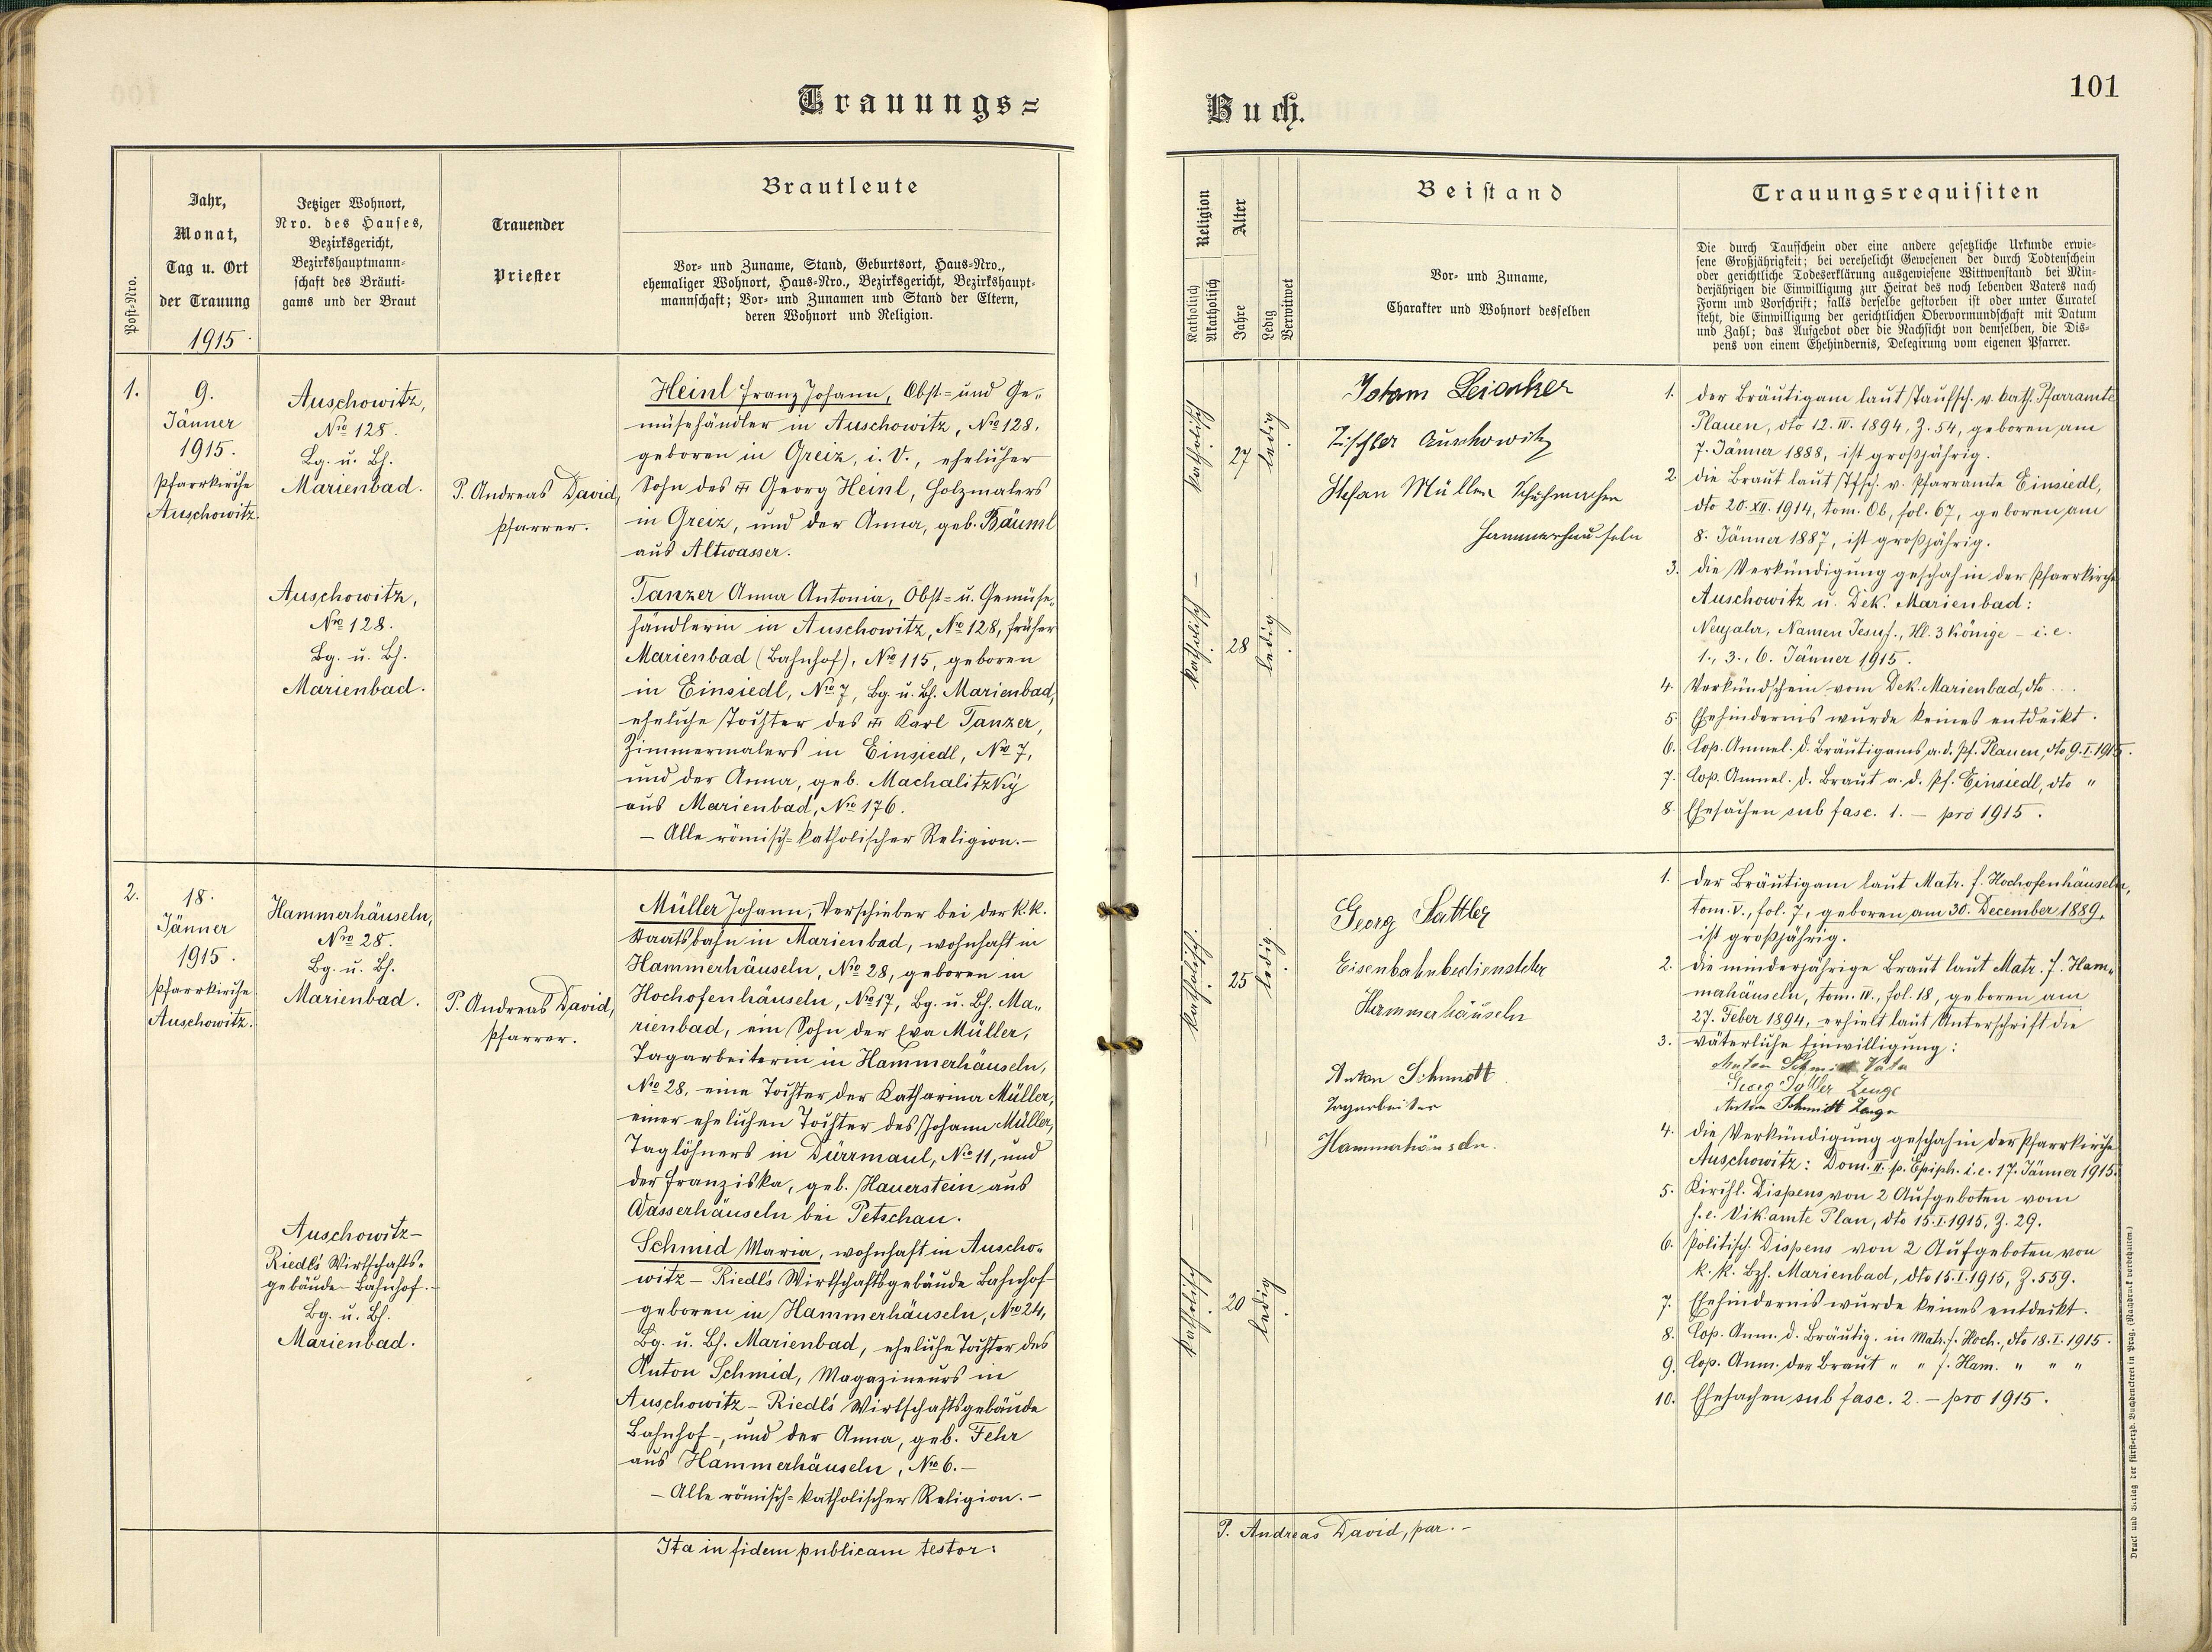 Trauungs=
Buch.
101
Post-Nro.
Jahr,
Monat,
Tag u. Ort
der Trauung
1915
Jetziger Wohnort,
Nro. des Hauses,
Bezirksgericht,
Bezirkshauptmann-
schaft des Bräuti-
gams und der Braut
Trauender
Priester
Brautleute
Vor- und Zuname, Stand, Geburtsort, Haus-Nro.,
ehemaliger Wohnort, Haus-Nro., Bezirksgericht, Bezirkshaupt-
mannschaft; Vor- und Zunamen und Stand der Eltern,
deren Wohnort und Religion.
Religion
Katholisch
Akatholisch
Alter
Jahre
Ledig
Verwitwet
Beistand
Vor- und Zuname,
Charakter und Wohnort desselben
Trauungsrequisiten
Die durch Taufschein oder eine andere gesetzliche Urkunde erwie-
sene Großjährigkeit; bei verehelicht Gewesenen der durch Todtenschein
oder gerichtliche Todeserklärung ausgewiesene Wittwenstand bei Min-
derjährigen die Einwilligung zur Heirat des noch lebenden Vaters nach
Form und Vorschrift; falls derselbe gestorben ist oder unter Curatel
steht, die Einwilligung der gerichtlichen Obervormundschaft mit Datum
und Zahl; das Aufgebot oder die Nachsicht von demselben, die Dis-
pens von einem Ehehindernis, Delegirung vom eigenen Pfarrer.
1.
9.
Jänner
1915.
Pfarrkirche
Auschowitz.
Auschowitz,
Nro 128.
Bg. u. Bh.
Marienbad.
Auschowitz,
Nro 128.
Bg. u. Bh.
Marienbad.
P. Andreas David,
Pfarrer.
Heinl Franz Johann, Obst- und Ge-
müsehändler in Auschowitz, Nro 128,
geboren in Greiz, i. V., ehelicher
Sohn des Georg Heinl, Holzmalers
in Greiz, und der Anna, geb. Bäuml
aus Altwasser.
Tanzer Anna Antonia, Obst- u. Gemüse-
händlerin in Auschowitz, Nro 128, früher
Marienbad (Bahnhof), Nro 115, geboren
in Einsiedl, Nro 7, Bg. u. Bh. Marienbad,
eheliche Tochter des Karl Tanzer,
Zimmermalers in Einsiedl, Nro 7,
und der Anna, geb. Machalitzky
aus Marienbad, Nro 176.
– Alle römisch-katholischer Religion. –
katholisch
27
ledig.
katholisch –
28
ledig.
Tischler Auschowitz
Stefan Müller Schuhmacher
Hammerhäuseln
1. der Bräutigam laut Taufsch. v. kath. Pfarramte
Plauen, dto 12. IV. 1894, Z. 54, geboren am
7. Jänner 1888, ist großjährig.
2. die Braut laut Tfsch. v. Pfarramte Einsiedl,
dto 20. XII. 1914, tom. Ob, fol. 67, geboren am
8. Jänner 1887, ist großjährig.
3. die Verkündigung geschah in der Pfarrkirche
Auschowitz u. Dek. Marienbad:
Neujahr, Namen Jesuf., Hl. 3 Könige – i. e.
1., 3., 6. Jänner 1915.
4. Verkündschein vom Dek. Marienbad, dto ...
5. Ehehindernis wurde keines entdeckt.
6. Cop. Anmel. d. Bräutigams a. d. Pf. Plauen, dto 9. I. 1915.
7. Cop. Anmel. d. Braut a. d. Pf. Einsiedl, dto "
8. Ehesachen sub fasc. 1. – pro 1915.
2.
18.
Jänner
1915.
Pfarrkirche
Auschowitz.
Hammerhäuseln,
Nro 28.
Bg. u. Bh.
Marienbad.
Auschowitz –
Riedl's Wirtschafts-
gebäude – Bahnhof. –
Bg. u. Bh.
Marienbad.
P. Andreas David,
Pfarrer.
Müller Johann, Verschieber bei der k. k.
Staatsbahn in Marienbad, wohnhaft in
Hammerhäuseln, Nro 28, geboren in
Hochofenhäuseln, Nro 17, Bg. u. Bh. Ma-
rienbad, ein Sohn der Eva Müller,
Tagarbeiterin in Hammerhäuseln,
Nro 28, eine Tochter der Katharina Müller,
einer ehelichen Tochter des Johann Müller,
Taglöhners in Dürrmaul, Nro 11, und
der Franziska, geb. Hauerstein aus
Wasserhäuseln bei Petschau.
Schmid Maria, wohnhaft in Auscho-
witz – Riedl's Wirtschaftsgebäude Bahnhof –
geboren in Hammerhäuseln, Nro 24,
Bg. u. Bh. Marienbad, eheliche Tochter des
Anton Schmid, Magazineurs in
Auschowitz – Riedl's Wirtschaftsgebäude
Bahnhof –, und der Anna, geb. Fehr
aus Hammerhäuseln, Nro 6. –
– Alle römisch-katholischer Religion. –
katholisch
25
ledig.
katholisch –
20
ledig
Georg Sattler
Eisenbahnbediensteter
Hammerhäuseln
Anton Schmidt
Tagarbeiter
Hammerhäuseln.
1. der Bräutigam laut Matr. f. Hochofenhäuseln,
tom. V., fol. 7, geboren am 30. December 1889,
ist großjährig.
2. die minderjährige Braut laut Matr. f. Ham-
merhäuseln, tom. IV., fol. 18, geboren am
27. Feber 1894, erhielt laut Unterschrift die
3. väterliche Einwilligung:
Anton Schmidt Vater
Georg Sattler Zeuge
Anton Schmidt Zeuge
4. die Verkündigung geschah in der Pfarrkirche
Auschowitz: Dom. II. p. Epiph. i. e. 17. Jänner 1915.
5. Kirchl. Dispens von 2 Aufgeboten vom
f. e. Vikamte Plan, dto 15. I. 1915, Z. 29.
6. Politisch. Dispens von 2 Aufgeboten von
k. k. Bzh. Marienbad, dto 15. I. 1915, Z. 559.
7. Ehehindernis wurde keines entdeckt.
8. Cop. Anm. d. Bräutig. in Matr. f. Hoch., dto 18. I. 1915.
9. Cop. Anm. der Braut " " f. Ham. " " "
10. Ehesachen sub fasc. 2. – pro 1915.
Ita in fidem publicam testor:
P. Andreas David, par. –
Druck und Verlag der fürst-erzb. Buchdruckerei in Prag. (Nachdruck vorbehalten.)